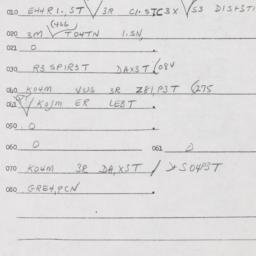 010 EHHR1.,ST 3R C1.STC3X
(466
020 3M TOHTN 1.SN,
021 0
030 R3 SPIRST DAXST (084
040 KOHM VUS 3R Z81,PST (275
061 KOJM ER LEBT
050 0
060 0 061 0
070 KOHM 3R DA,XST / SOHPST
080 GREH,PCN